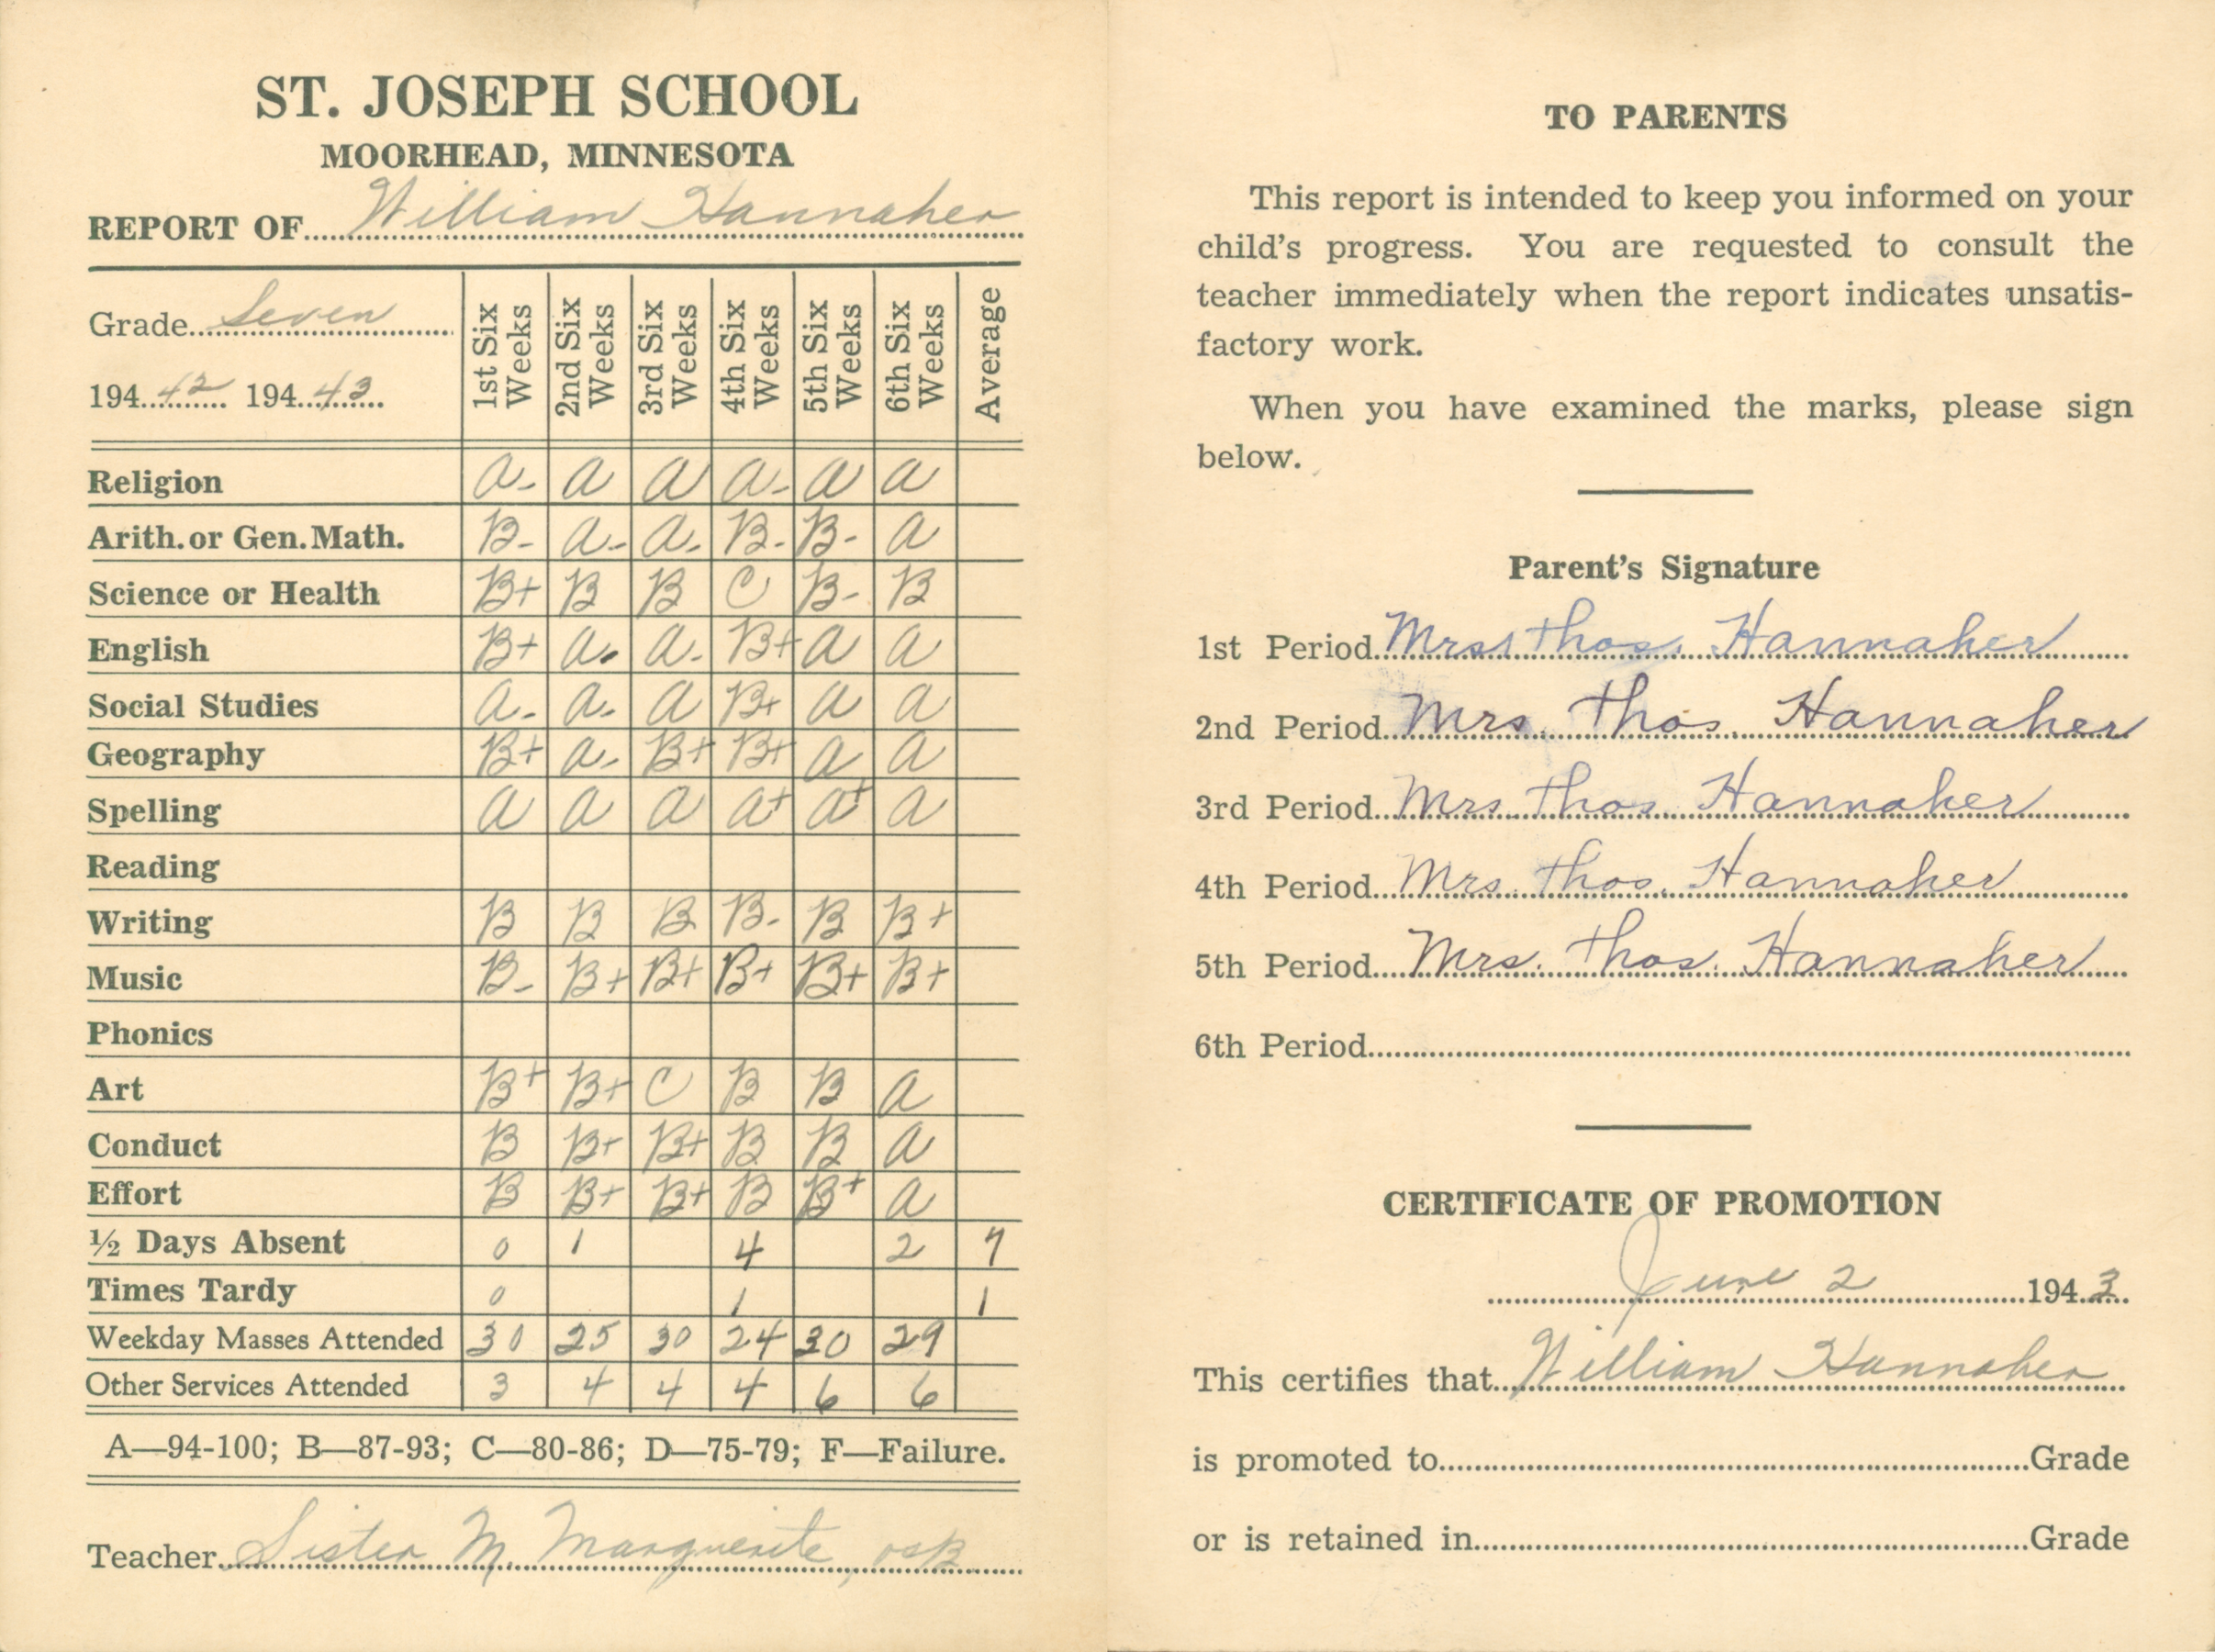 ST. JOSEPH SCHOOL
MOORHEAD, MINNESOTA
REPORT OF William Hannaher
Grade Seven
194 42 194 43
1st Six Weeks 2nd Six Weeks 3rd Six Weeks 4th Six Weeks 5th Six Weeks 6th Six Weeks Average
Religion A- A A A- A A
Arith. or Gen. Math. B- A- A- B- B- A
Science or Health B+ B B C B- B
English B+ A- A- B+ A A
Social Studies A- A- A B+ A A
Geography B+ A- B+ B+ A A
Spelling A A A A+ A+ A
Reading
Writing B B B B- B B+
Music B- B+ B+ B+ B+ B+
Phonics
Art B+ B+ C B B A
Conduct B B+ B+ B B A
Effort B B+ B+ B B+ A
½ Days Absent 0 1 4 2 7
Times Tardy 0 1 1
Weekday Masses Attended 30 25 30 24 30 29
Other Services Attended 3 4 4 4 6 6
A—94-100; B—87-93; C—80-86; D—75-79; F—Failure.
Teacher Sister M. Marguerite, OSB
TO PARENTS
This report is intended to keep you informed on your
child's progress. You are requested to consult the
teacher immediately when the report indicates unsatis-
factory work.
When you have examined the marks, please sign
below.
Parent's Signature
1st Period Mrs. Thos. Hannaher
2nd Period Mrs. Thos. Hannaher
3rd Period Mrs. Thos. Hannaher
4th Period Mrs. Thos. Hannaher
5th Period Mrs. Thos. Hannaher
6th Period
CERTIFICATE OF PROMOTION
June 2 1943
This certifies that William Hannaher
is promoted to Grade
or is retained in Grade